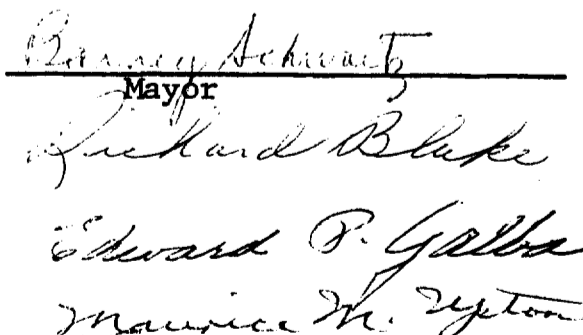 Barney Schwartz
Mayor
Richard Blake
Edward P. Galba
Maurice M. Upton